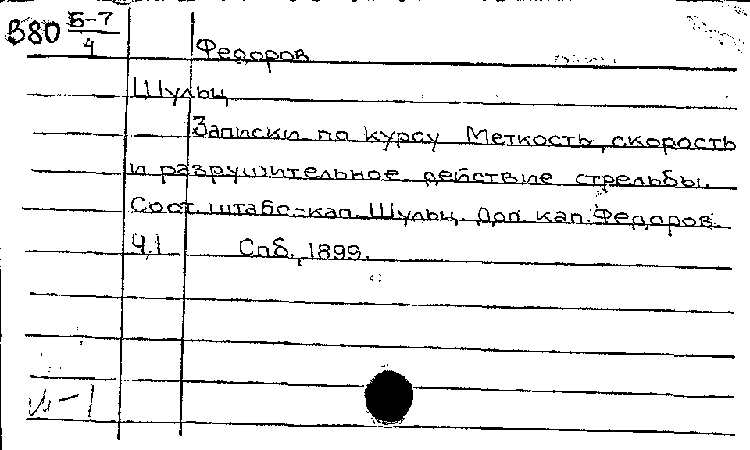 В80 Б-7/4
Федоров
Шульц
Записки по курсу Меткость, скорость
и разрушительное действие стрельбы.
Сост. штабс-кап. Шульц. Доп. кап. Федоров.
Ч.1 Спб., 1899.